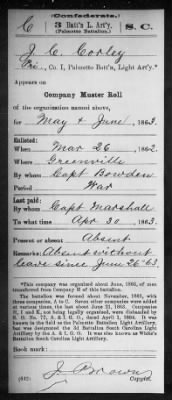 (Confederate.)
C 3 Batt'n L. Art'y. S. C.
(Palmetto Battalion.)
J. C. Corley
Pri, Co. I, Palmetto Batt'n, Light Art'y.*
Appears on
Company Muster Roll
of the organization named above,
for May & June, 1863.
Enlisted:
When Mar 26, 1862.
Where Greenville
By whom Capt Bowden
Period War
Last paid:
By whom Capt. Marshall
To what time Apr 30, 1863.
Present or absent Absent
Remarks: Absent without
leave since June 26" 63.
*This company was organized about June, 1862, of men
transferred from Company B of this battalion.
The battalion was formed about November, 1861, with
three companies, A to C. Seven other companies were added
at various times, the last about June 21, 1862. Companies
H, I and K, not being legally organized, were disbanded by
S. O. No. 77, A. & I. G. O., dated April 1, 1864. It was
known in the field as the Palmetto Battalion Light Artillery,
but was designated the 3d Battalion South Carolina Light
Artillery by the A. & I. G. O. It was also known as White's
Battalion South Carolina Light Artillery.
Book mark:
J. Brown
(642) Copyist.